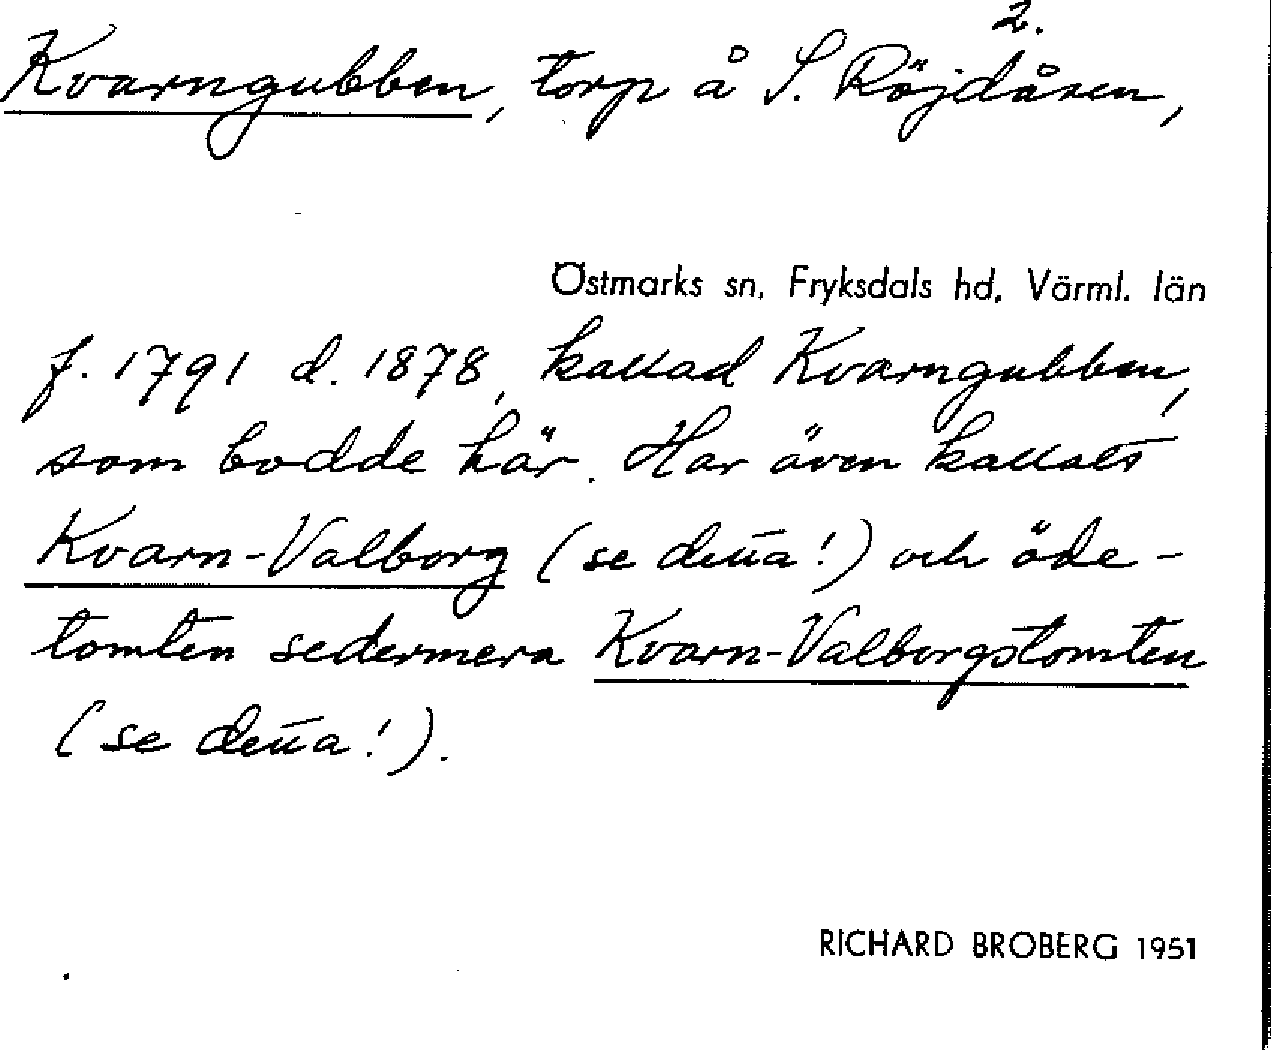 2.
Kvarngubben, torp å S. Röjdåsen,
Östmarks sn, Fryksdals hd, Värml. län
f. 1791 d. 1878, kallad Kvarngubben,
som bodde här. Har även kallats
Kvarn-Valborg (se detta!) och öde-
tomten sedermera Kvarn-Valborgstomten
(se detta!).
RICHARD BROBERG 1951